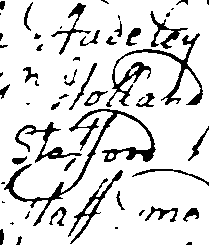 Audeley
Holland
Stafford
Staff me